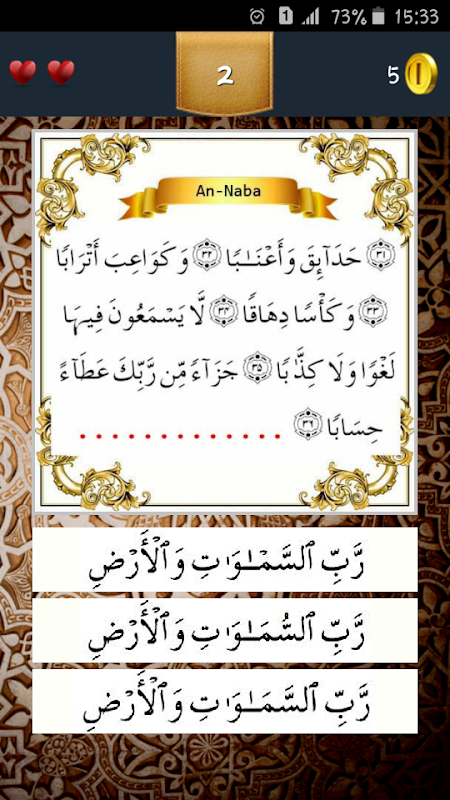 15:33 73% 1
2
5
An-Naba
٣١ حَدَآئِقَ وَأَعْنَـٰبًا ٣٢ وَكَوَاعِبَ أَتْرَابًا
٣٣ وَكَأْسًا دِهَاقًا ٣٤ لَّا يَسْمَعُونَ فِيهَا
لَغْوًا وَلَا كِذَّٰبًا ٣٥ جَزَآءً مِّن رَّبِّكَ عَطَآءً
حِسَابًا ٣٦ .............
رَّبِّ ٱلسَّمْـٰوَٰتِ وَٱلْأَرْضِ
رَّبِّ ٱلسُّمَـٰوَٰتِ وَٱلْأَرْضِ
رَّبِّ ٱلسَّمَـٰوَٰتِ وَٱلْأَرْضِ